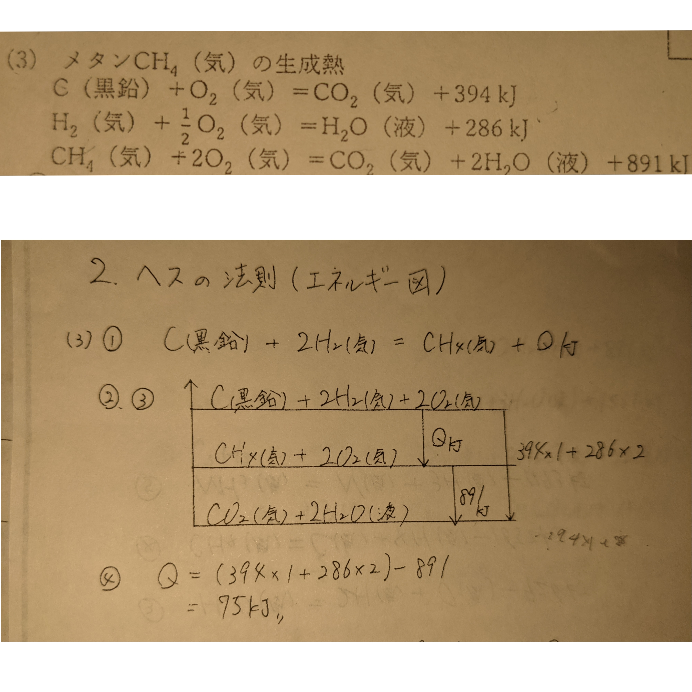 (3) メタンCH₄（気）の生成熱
C（黒鉛）+O₂（気）=CO₂（気）+394 kJ
H₂（気）+1/2 O₂（気）=H₂O（液）+286 kJ
CH₄（気）+2O₂（気）=CO₂（気）+2H₂O（液）+891 kJ
2. ヘスの法則（エネルギー図）
(3) ① C(黒鉛) + 2H₂(気) = CH₄(気) + QkJ
②.③ C(黒鉛) + 2H₂(気) + 2O₂(気)
QkJ
CH₄(気) + 2O₂(気)
394×1+286×2
891kJ
CO₂(気)+2H₂O(液)
④ Q = (394×1+286×2)-891
= 75kJ〃